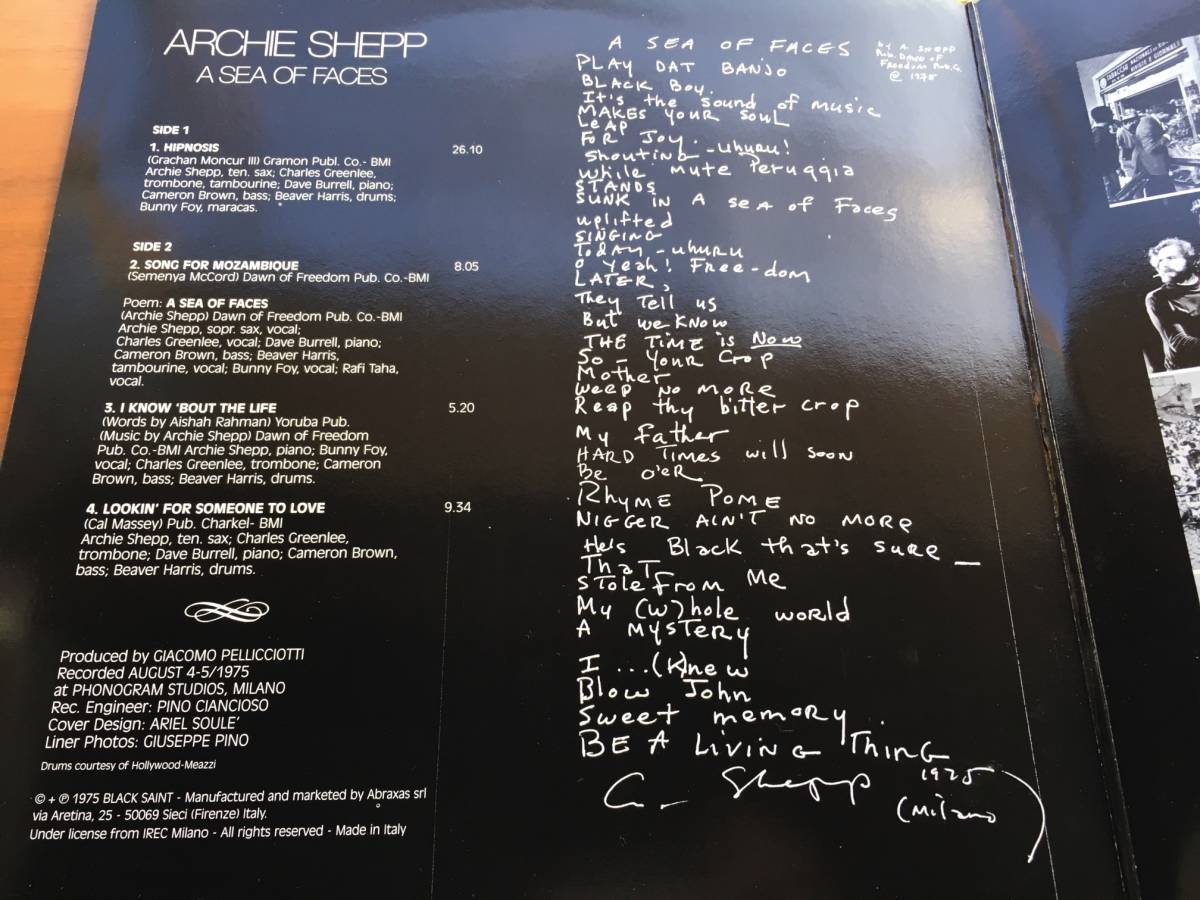 ARCHIE SHEPP
A SEA OF FACES
SIDE 1
1. HIPNOSIS 26.10
(Grachan Moncur III) Gramon Publ. Co.- BMI
Archie Shepp, ten. sax; Charles Greenlee,
trombone, tambourine; Dave Burrell, piano;
Cameron Brown, bass; Beaver Harris, drums;
Bunny Foy, maracas.
SIDE 2
2. SONG FOR MOZAMBIQUE 8.05
(Semenya McCord) Dawn of Freedom Pub. Co.-BMI
Poem: A SEA OF FACES
(Archie Shepp) Dawn of Freedom Pub. Co.-BMI
Archie Shepp, sopr. sax, vocal;
Charles Greenlee, vocal; Dave Burrell, piano;
Cameron Brown, bass; Beaver Harris,
tambourine, vocal; Bunny Foy, vocal; Rafi Taha,
vocal.
3. I KNOW 'BOUT THE LIFE 5.20
(Words by Aishah Rahman) Yoruba Pub.
(Music by Archie Shepp) Dawn of Freedom
Pub. Co.-BMI Archie Shepp, piano; Bunny Foy,
vocal; Charles Greenlee, trombone; Cameron
Brown, bass; Beaver Harris, drums.
4. LOOKIN' FOR SOMEONE TO LOVE 9.34
(Cal Massey) Pub. Charkel- BMI
Archie Shepp, ten. sax; Charles Greenlee,
trombone; Dave Burrell, piano; Cameron Brown,
bass; Beaver Harris, drums.
Produced by GIACOMO PELLICCIOTTI
Recorded AUGUST 4-5/1975
at PHONOGRAM STUDIOS, MILANO
Rec. Engineer: PINO CIANCIOSO
Cover Design: ARIEL SOULE'
Liner Photos: GIUSEPPE PINO
Drums courtesy of Hollywood-Meazzi
© + ℗ 1975 BLACK SAINT - Manufactured and marketed by Abraxas srl
via Aretina, 25 - 50069 Sieci (Firenze) Italy.
Under license from IREC Milano - All rights reserved - Made in Italy
A SEA OF FACES
by A. SHEPP
Pub. DAWN OF
FREEDOM Pub. C.
@ 1975
PLAY DAT BANJO
BLACK BOY.
It's the sound of music
MAKES YOUR SOUL
LEAP
FOR JOY.
Shouting-uhuru!
while mute Peruggia
STANDS
SUNK IN A SEA of Faces
uplifted
SINGING
TODAY-uhuru
O Yeah! Free-dom
LATER,
They Tell us
But we KNOW
THE TIME is NOW
So - YOUR CROP
Mother
Weep NO MORE
Reap thy bitter crop
My father
HARD TIMES will SOON
Be o'ER
RHYME POME
NIGGER AIN'T NO MORE
He's Black that's sure _
THAT
STOLE FROM ME
My (w)hole world
A MYSTERY
I ...(K)new
Blow John
Sweet memory
BE A LIVING THING
A. Shepp 1975
(Milano)